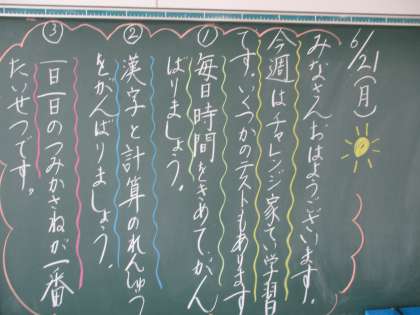 6/21(月)
みなさんおはようございます。
今週はチャレンジ家てい学習
です。いくつかのテストもあります
①毎日時間をきめてがん
ばりましょう。
②漢字と計算のれんしゅう
をがんばりましょう。
③一日一日のつみかさねが一番
たいせつです。